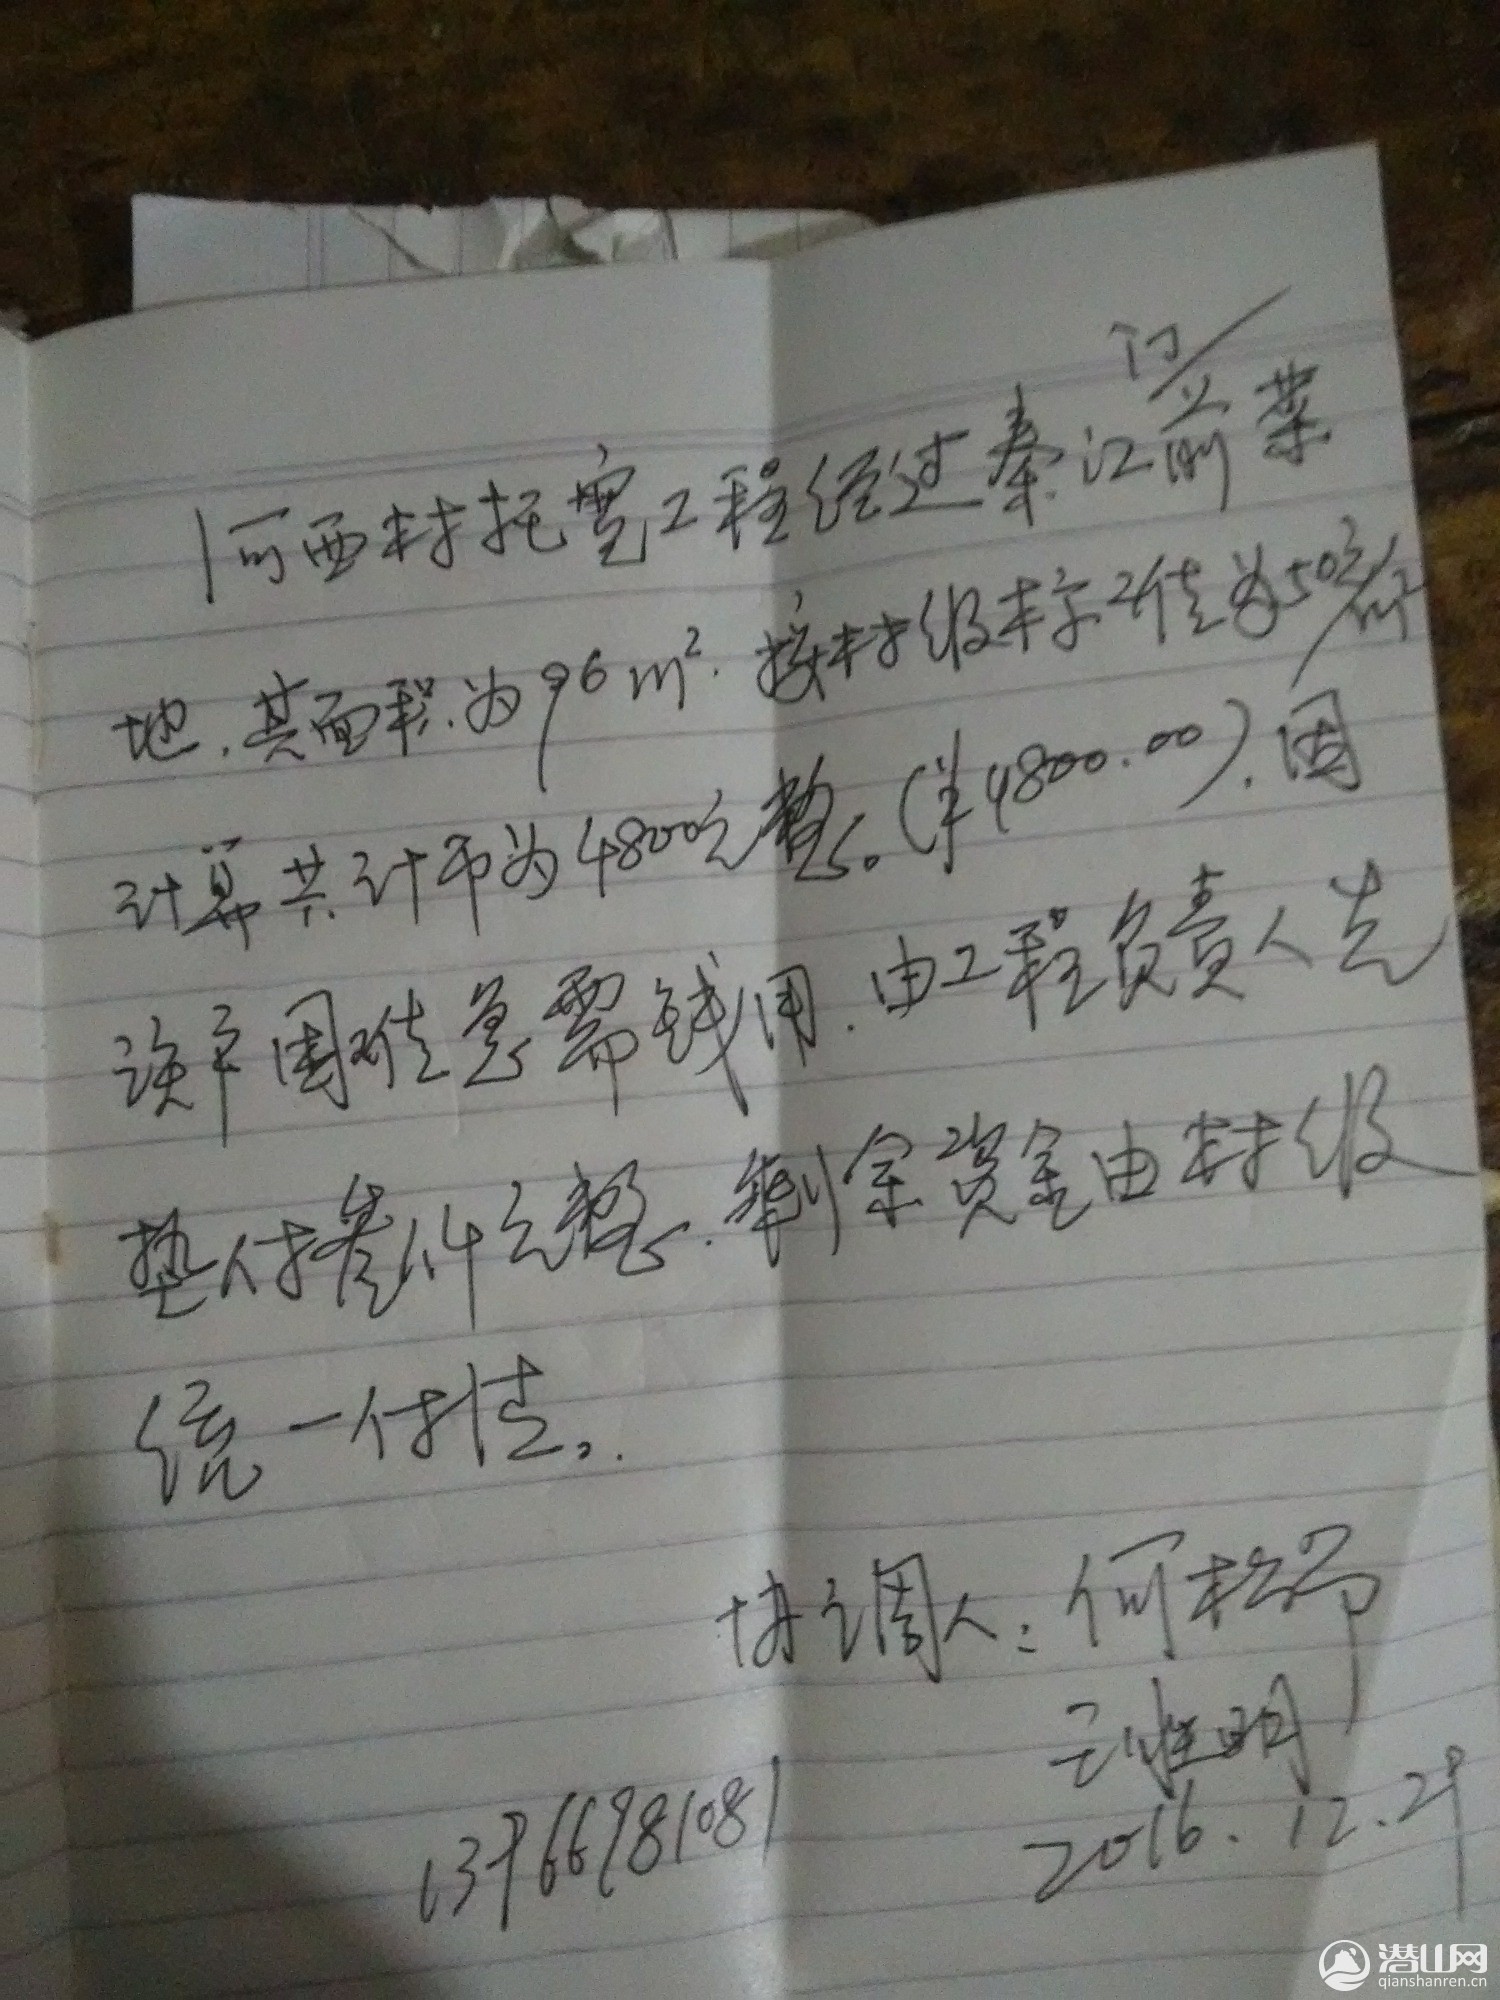 门前
河西村托宽工程经过秦江菜
地.其面积为96m².按村级标准为50元/m²
计算共计币为4800元整。(¥4800.00).因
该户困难急需钱用.由工程负责人先
垫付叁仟元整.剩余资金由村级
统一付清。
协调人:何松节
王雅明
2016.12.29
13966981081
潜山网
qianshanren.cn